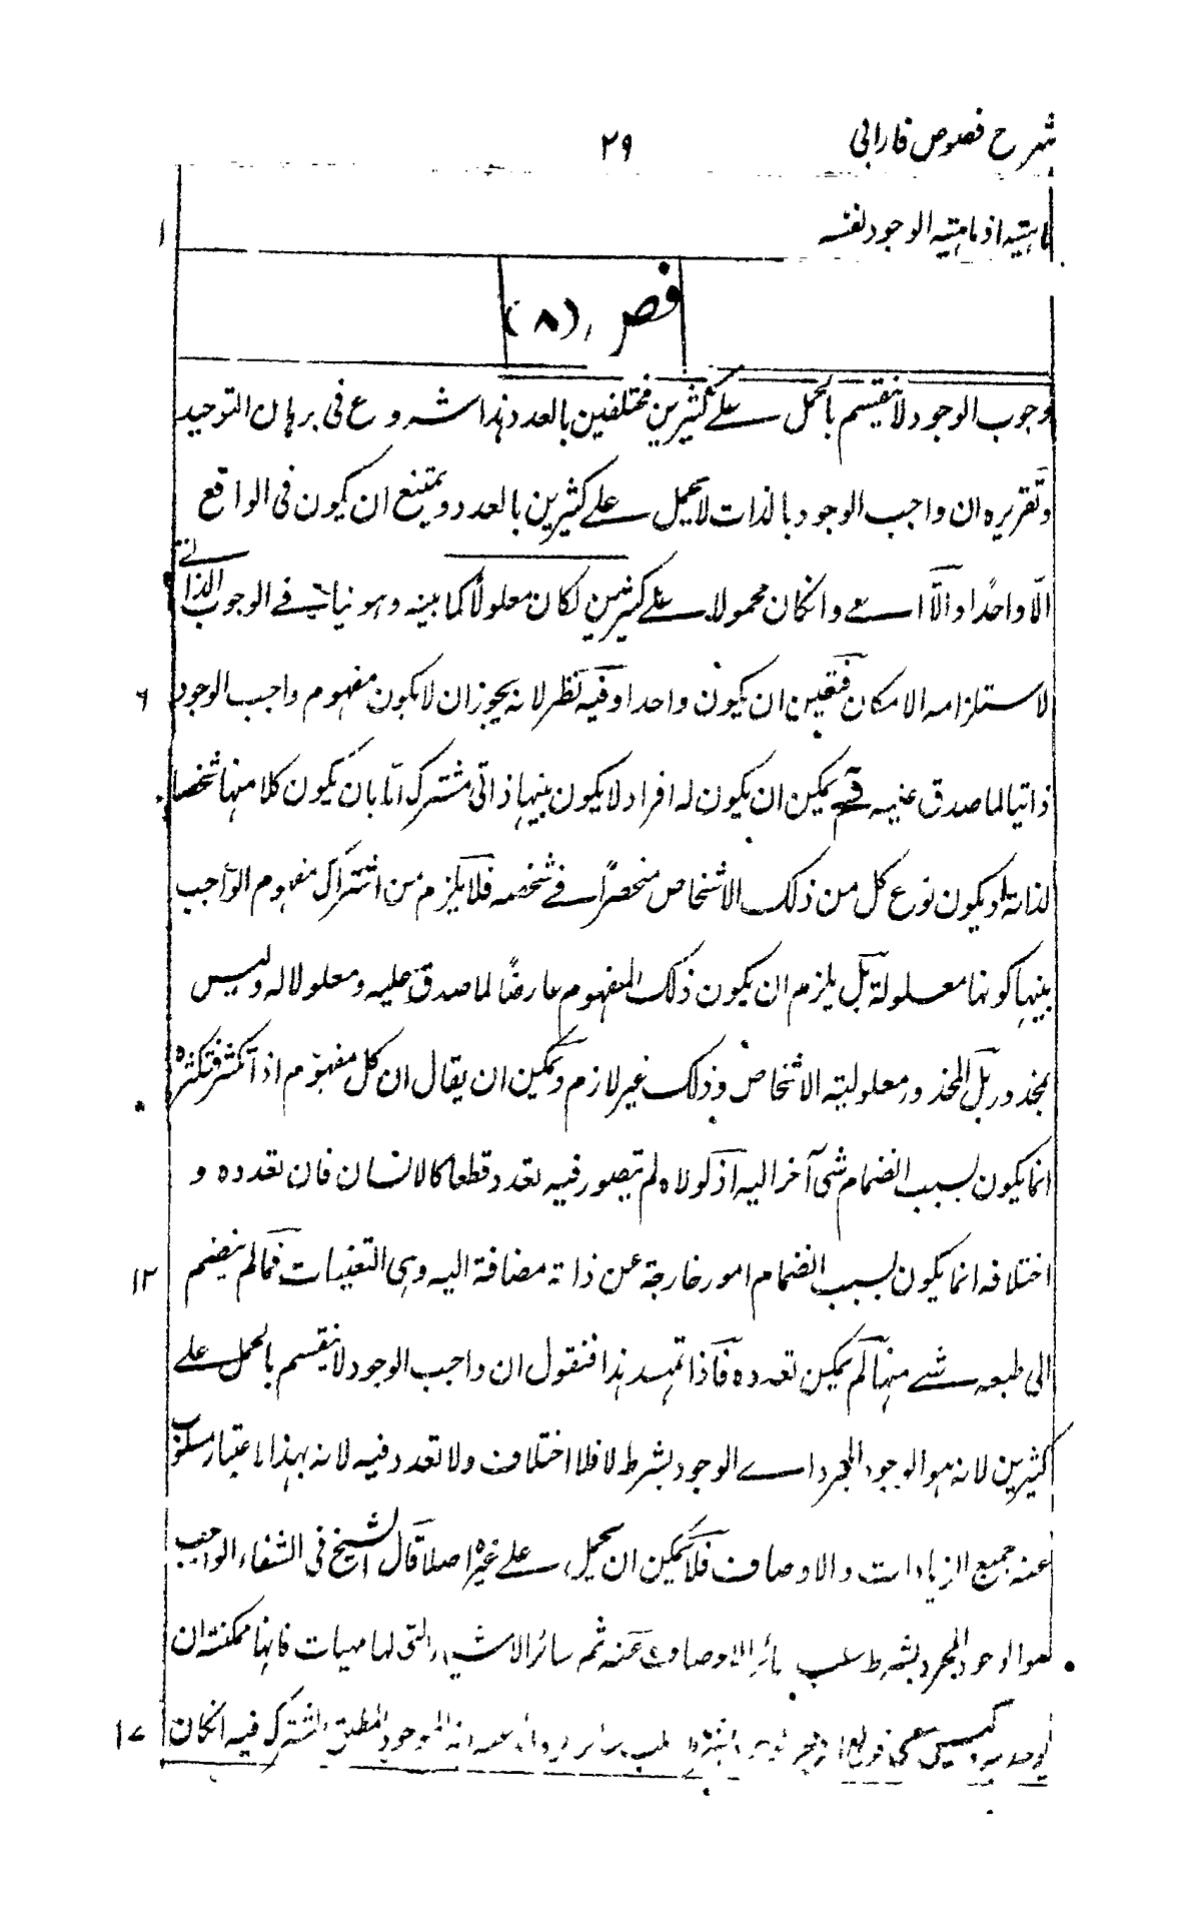 شرح فصوص فارابی ۲۹
ماهیته اذ ماهیته الوجود نفسه ۱
فص (۸)
وجوب الوجود لا ینقسم بالحمل علے کثیرین مختلفین بالعدد هذا شروع فی برهان التوحید
و تقریره ان واجب الوجود بالذات لا یحمل علے کثیرین بالعدد و یمتنع ان یکون فی الواقع
الّا واحدًا و الّا اے و انکان محمولا علے کثیرین لکان معلولًا کما بینه و هو ینافے فے الوجوب الذاتے
لاستلزامه الامکان فتعین ان یکون واحدا و فیه نظر لانه یجوز ان لا یکون مفهوم واجب الوجود ۶
ذاتیا لما صدق علیه فح یمکن ان یکون له افراد لا یکون بینها ذاتی مشترک امّا بان یکون کلا منها شخصا
لذاته او یکون نوع کل من ذلک الاشخاص منحصرًا فے شخصه فلا یلزم من اشتراک مفهوم الواجب
بینها کونها معلولة بل یلزم ان یکون ذلک المفهوم عارضًا لما صدق علیه و معلولا له و لیس
بمحذور بل المحذور معلولیته الاشخاص و ذلک غیر لازم و یمکن ان یقال ان کل مفهوم اذا تکثر فتکثره
انما یکون بسبب انضمام شی آخر الیه اذ لولاه لم یتصور فیه تعدد قطعا کالانسان فان تعدده و
اختلافه انما یکون بسبب انضمام امور خارجة عن ذاته مضافة الیه و هی التعینات فمالم ینضم ۱۲
الی طبعه شے منها لم یمکن تعدده فاذا تمهد هذا فنقول ان واجب الوجود لا ینقسم بالحمل علے
کثیرین لانه هو الوجود المجرد اے الوجود بشرط لا فلا اختلاف و لا تعدد فیه لانه بهذا الاعتبار مسلوب
عنه جمیع الزیادات و الاوصاف فلا یمکن ان یحمل علے غیره اصلا قال الشیخ فی الشفاء الواجب
هو الوجود المجرد بشرط سلب سائر الاوصاف عنه ثم سائر الاشیاء التی لها مهیات فانها ممکنة ان
توجد به و لیس معنی قولی انه الموجود المطلق المشترک فیه انکان ۱۷